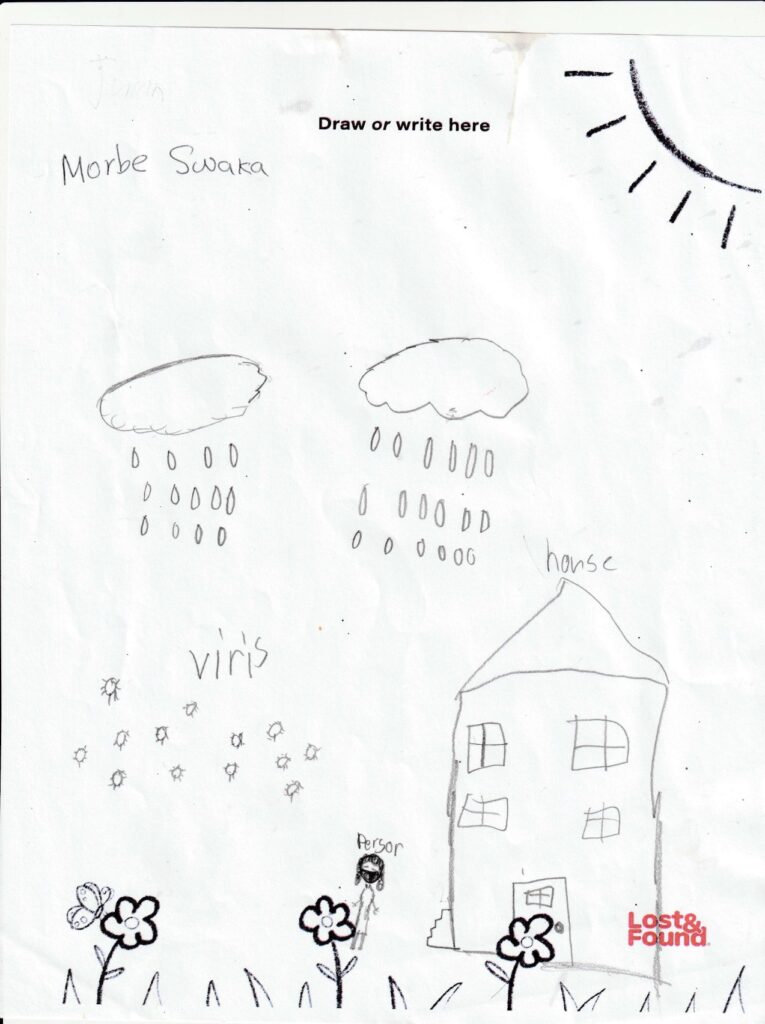 Draw or write here
Morbe Swaka
house
viris
Person
Lost&
Found